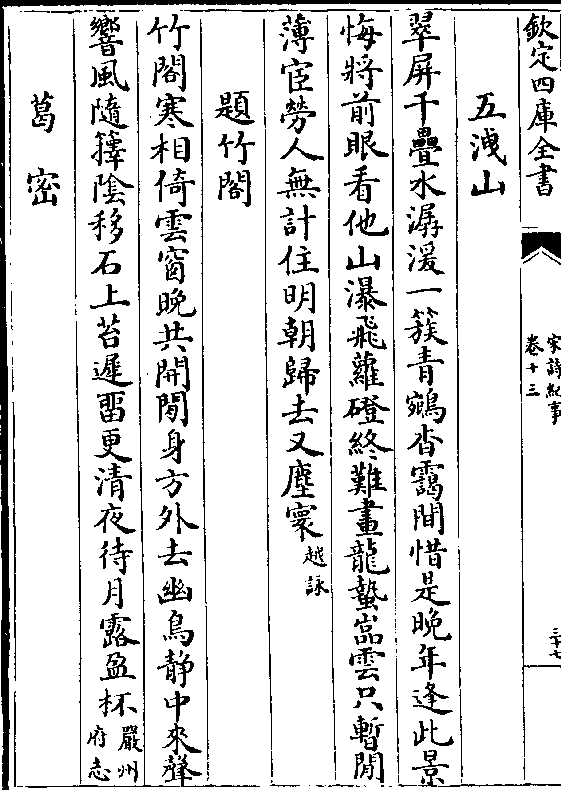 欽定四庫全書
宋詩紀事
卷十三
三十七
五洩山
翠屏千疊水潺湲一簇青鴛杳靄間惜是晚年逢此景
悔將前眼看他山瀑飛蘿磴終難畫龍蟄嵓雲只暫閒
薄宦勞人無計住明朝歸去又塵寰越詠
題竹閣
竹閣寒相倚雲窗晚共開閒身方外去幽鳥静中來聲
響風隨籜陰移石上苔遲畱更清夜待月露盈杯嚴州府志
葛密